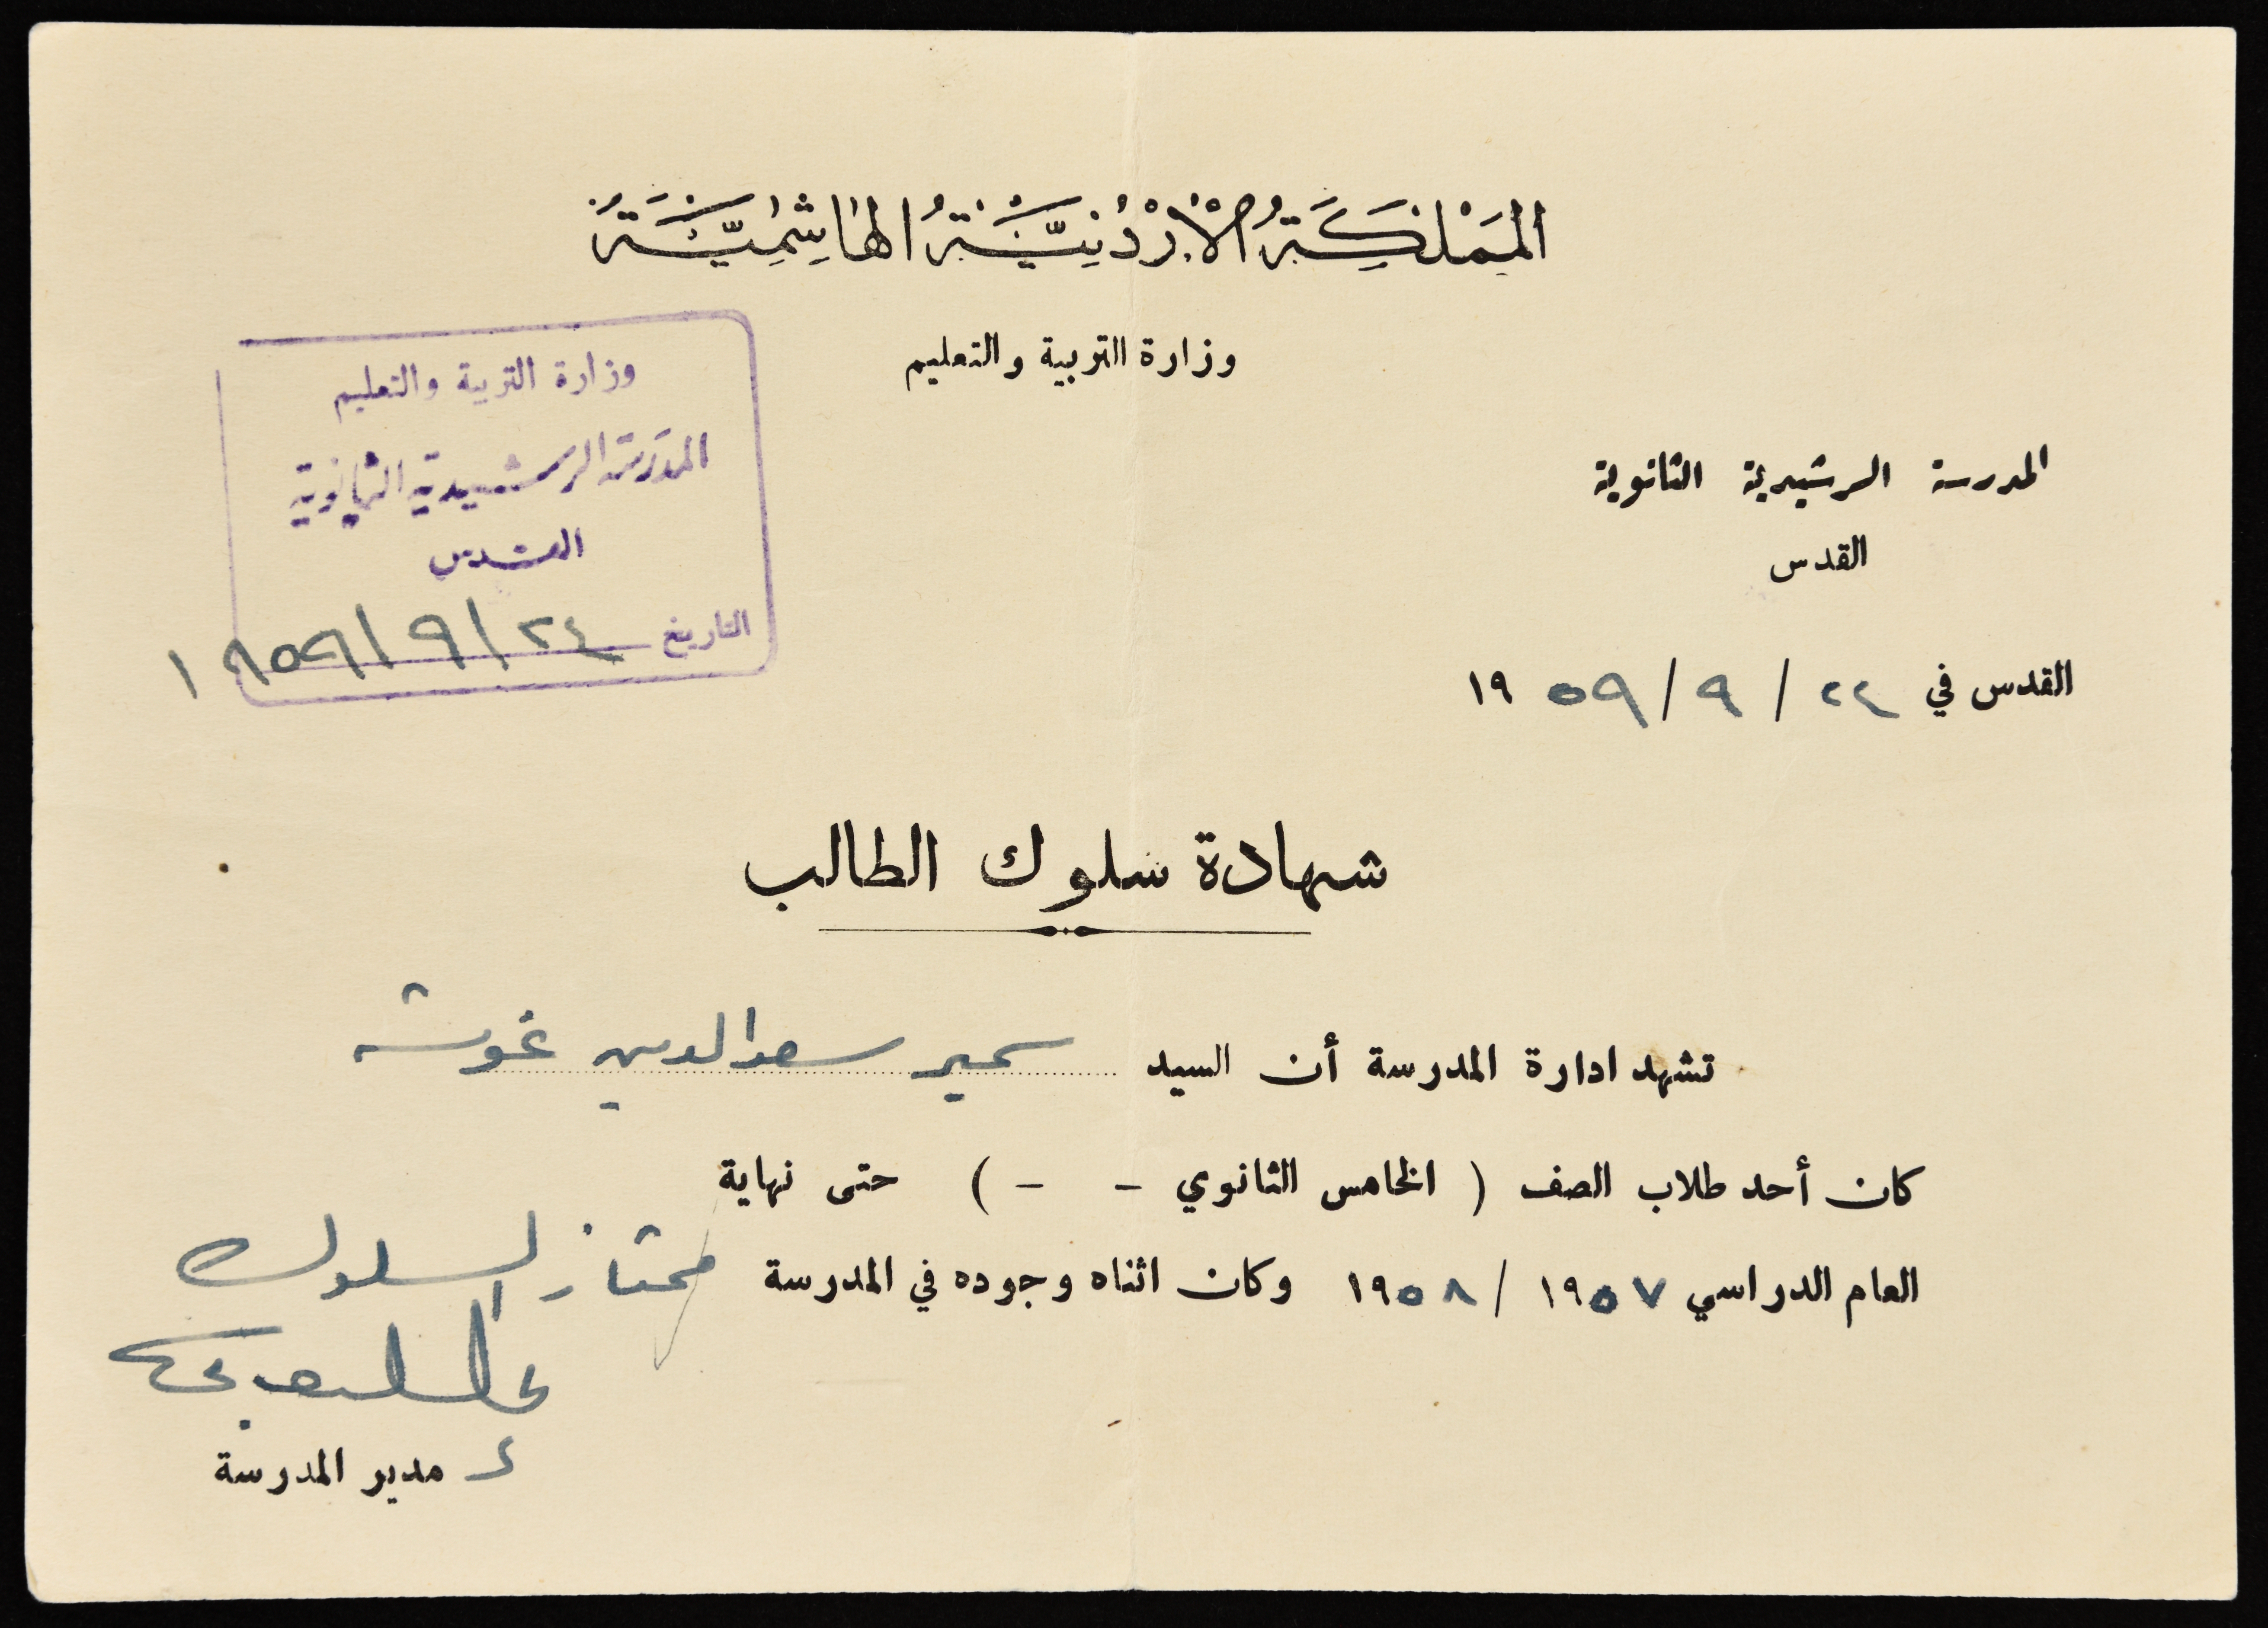 المَمْلَكَةُ الأُرْدُنِيَّةُ الهَاشِمِيَّةُ
وزارة التربية والتعليم
وزارة التربية والتعليم
المدرسة الرشيدية الثانوية
القدس
التاريخ ٢٤/٩/١٩٥٩
المدرسة الرشيدية الثانوية
القدس
القدس في ٢٤ / ٩ / ١٩٥٩
شهادة سلوك الطالب
تشهد ادارة المدرسة أن السيد سمير سعد الدين غوشة
كان أحد طلاب الصف ( الخامس الثانوي - - ) حتى نهاية
العام الدراسي ١٩٥٧ / ١٩٥٨ وكان اثناه وجوده في المدرسة ممتاز السلوك
مدير المدرسة